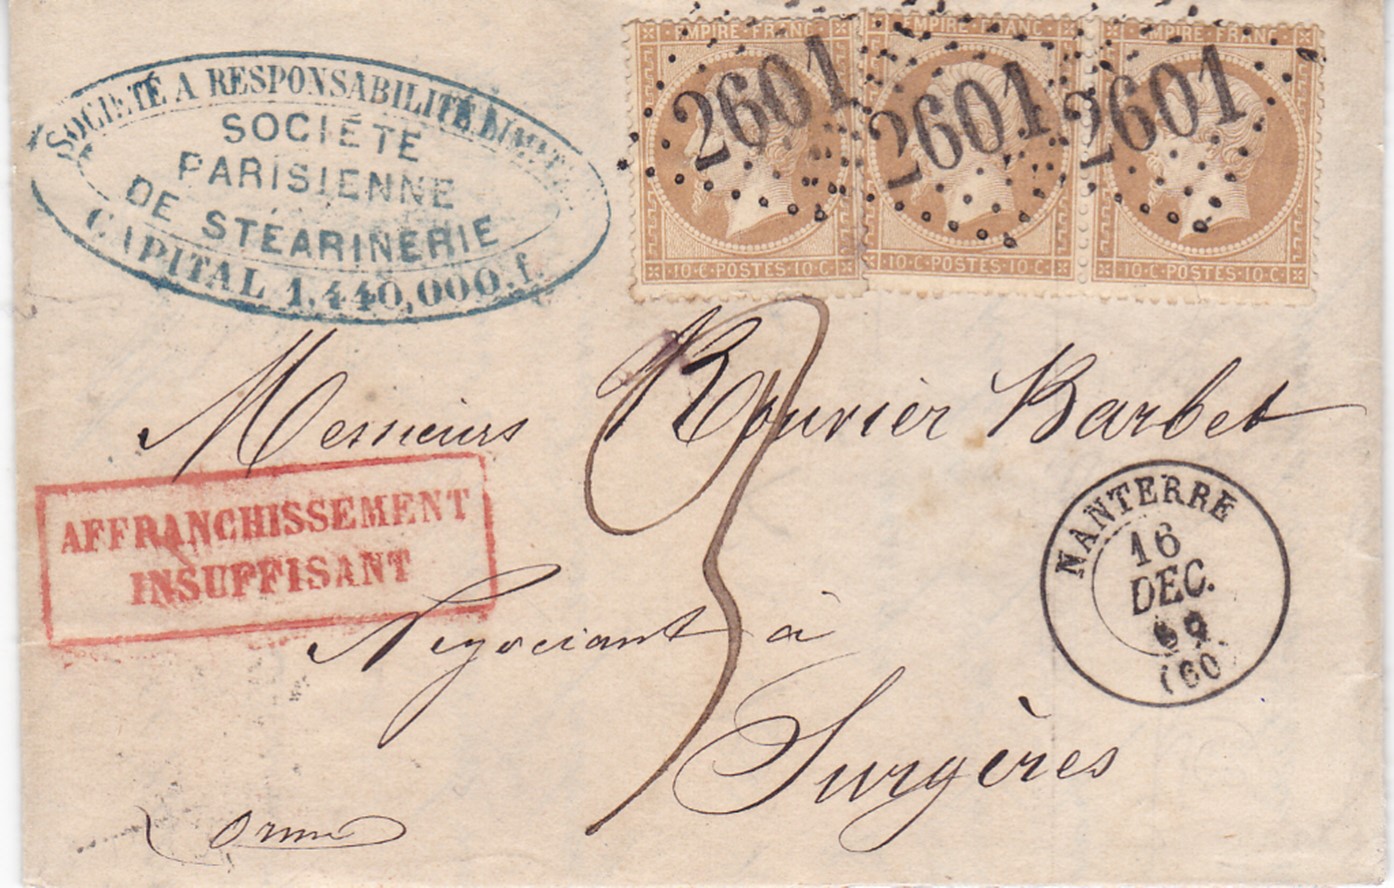 SOCIÉTÉ A RESPONSABILITÉ LIMITÉE
SOCIÉTÉ
PARISIENNE
DE STÉARINERIE
CAPITAL 1,440,000.f.
EMPIRE FRANC
2601
10·C·POSTES·10·C
EMPIRE FRANC
2601
10·C·POSTES·10·C
EMPIRE FRANC
2601
10·C·POSTES·10·C
3
Messieurs Rouvier Barbet
AFFRANCHISSEMENT
INSUFFISANT
NANTERRE
16
DEC.
69
(60)
Negociant à
Surgères